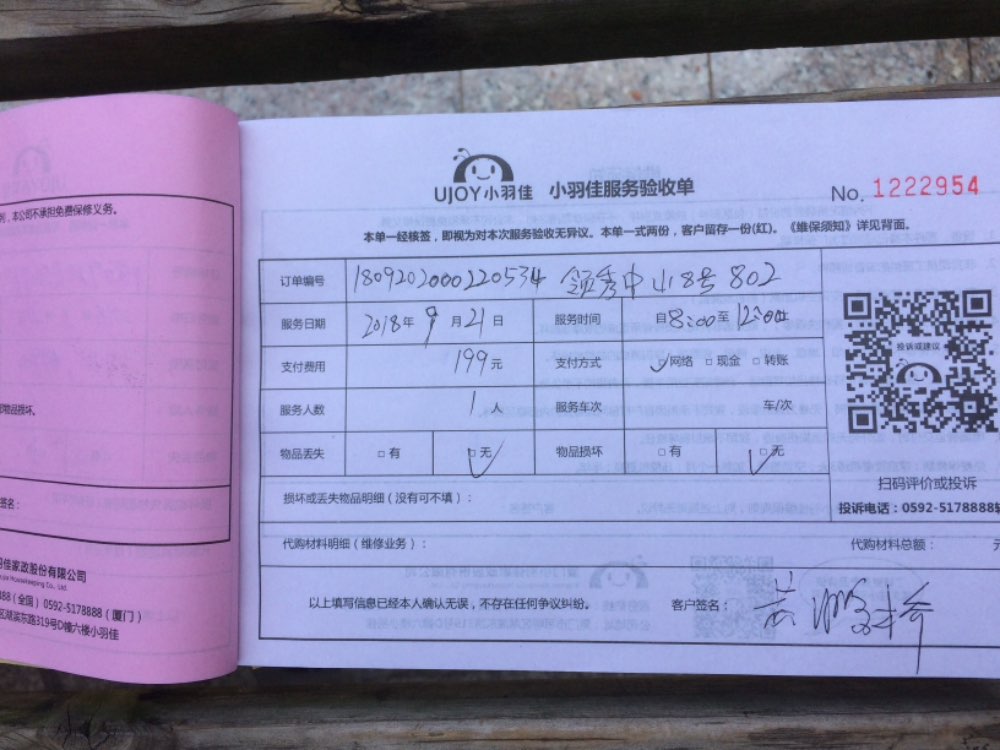 本公司不承担免费保修义务。
物品损坏。
签名：
佳家政股份有限公司
(全国) 0592-5178888 (厦门)
湖滨东路319号D幢六楼小羽佳
UJOY小羽佳 小羽佳服务验收单
No. 1222954
本单一经核签，即视为对本次服务验收无异议。本单一式两份，客户留存一份(红)。《维保须知》详见背面。
订单编号 1809202000220534 领秀中山8号802
服务日期 2018年9月21日 服务时间 自8:00至12:00止
支付费用 199元 支付方式 ☑网络 □现金 □转账
服务人数 1人 服务车次 车/次
物品丢失 □有 ☑无 物品损坏 □有 ☑无
损坏或丢失物品明细（没有可不填）：
代购材料明细（维修业务）： 代购材料总额： 元
以上填写信息已经本人确认无误，不存在任何争议纠纷。 客户签名：
投诉或建议
扫码评价或投诉
投诉电话：0592-5178888转